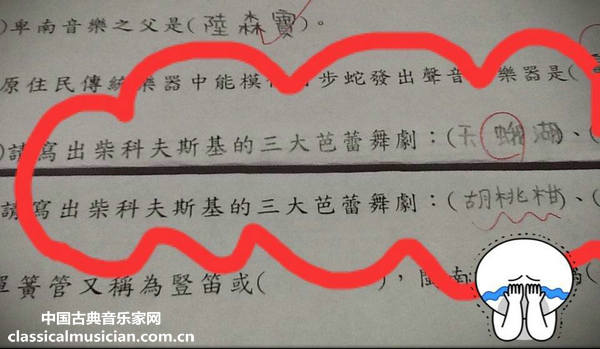 )卑南音樂之父是(陸森寶)。
原住民傳統樂器中能模 步蛇發出聲音 樂器是(
)請寫出柴科夫斯基的三大芭蕾舞劇：(天 湖)、(
請寫出柴科夫斯基的三大芭蕾舞劇：(胡桃柑)、(
簧管又稱為豎笛或( )，閩南
中国古典音乐家网
classicalmusician.com.cn